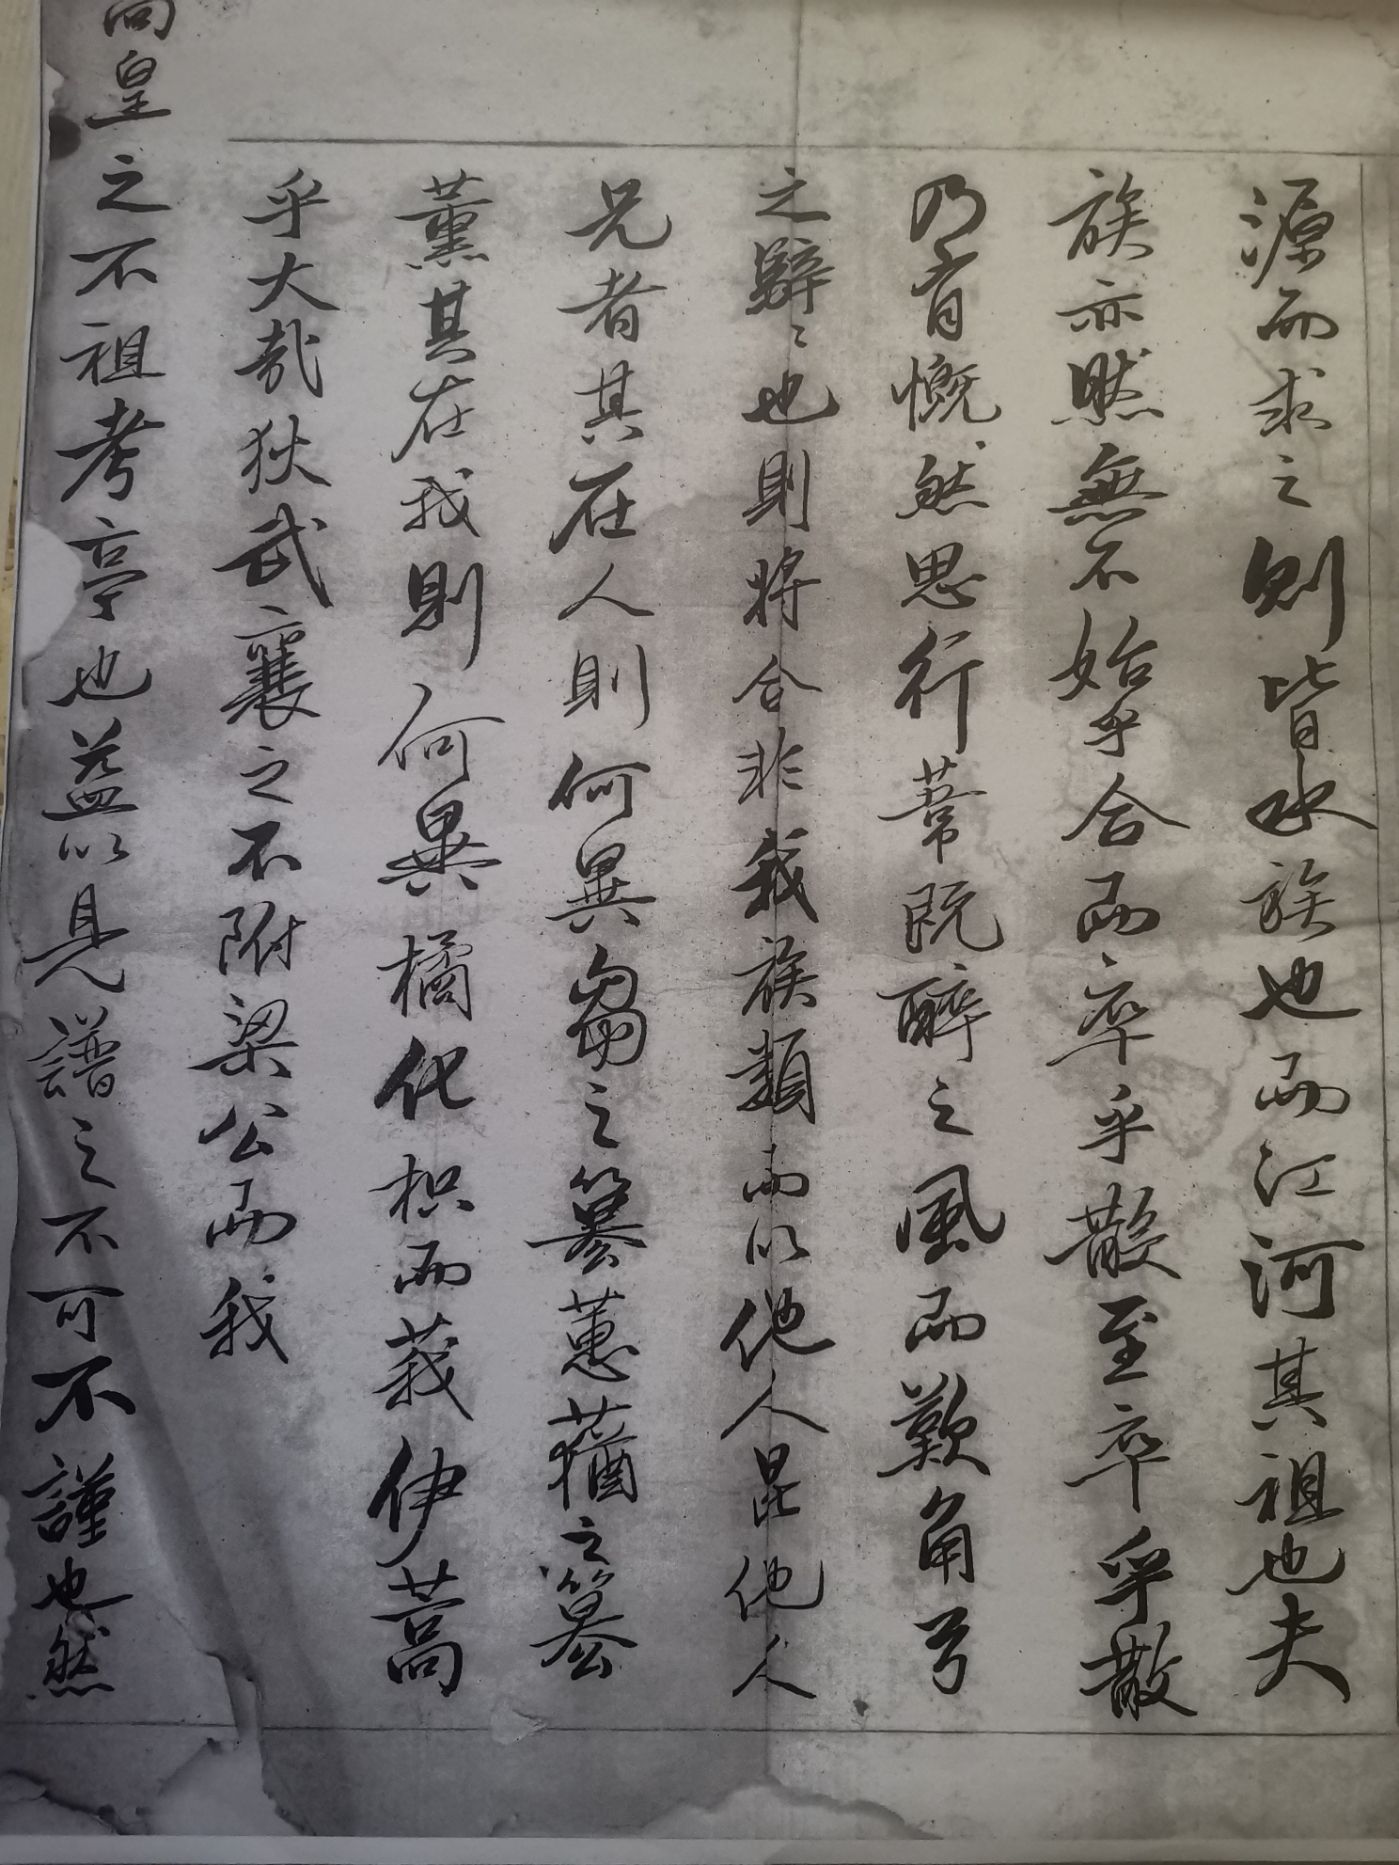 源而求之則皆水族也而江河其祖也夫
族亦然無不始乎合而卒乎散至卒乎散
乃有慨然思行葦既醉之風而歎角弓
之騂〻也則將合非我族類而以他人昆他人
兄者其在人則何異芻之篡蕙蕕之篡
薰其在我則何異橘化枳而莪伊蒿
乎大哉狄武襄之不附梁公而我
高皇之不祖考亭也益以見譜之不可不謹也然